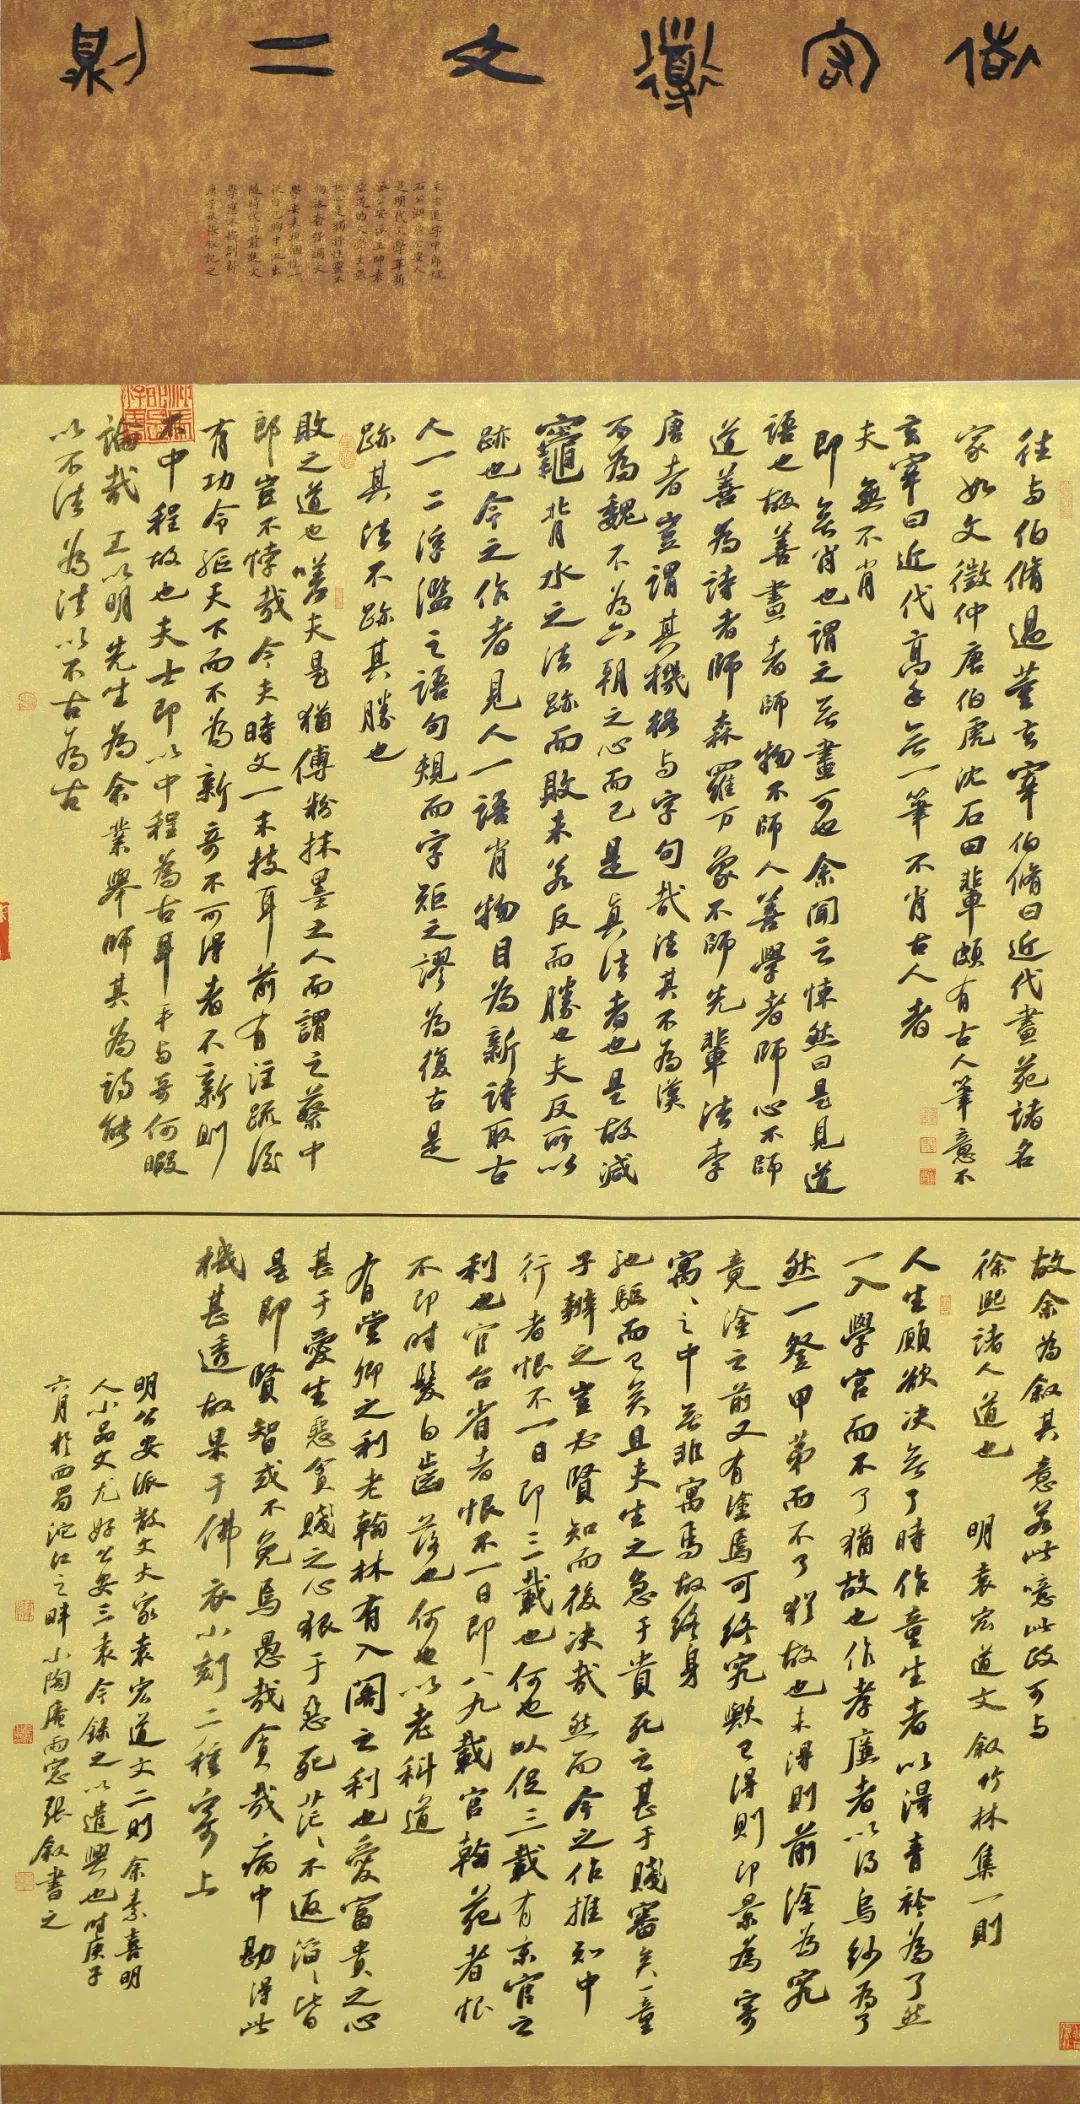 袁宏道文二則
袁宏道字中郎號
石公湖廣公安人
是明代文學革新
派公安派主帥袁
宏道的文學主張
核心是獨抒性靈不
拘格套強調文
學要表現個性一
從自己胸中流出
隨時代而前進文
學應不斷創新
庚子秋張叙記之
往与伯脩過董玄宰伯脩曰近代畫苑諸名
家如文徵仲唐伯虎沈石田輩頗有古人筆意不
玄宰曰近代高手無一筆不肖古人者
夫無不肖
即無肖也謂之無畫可也余聞之悚然曰是見道
語也故善畫者師物不師人善學者師心不師
道善為詩者師森羅万象不師先輩法李
唐者豈謂其機格与字句哉法其不為漢
不為魏不為六朝之心而已是真法者也是故減
竈背水之法跡而敗未若反而勝也夫反所以
跡也今之作者見人一語肖物目為新詩取古
人一二浮濫之語句規而字矩之謬為復古是
跡其法不跡其勝也
敗之道也嗟夫是猶傅粉抹墨之人而謂之蔡中
郎豈不悖哉今夫時文一末技耳前有注疏後
有功令驅天下而不為新奇不可得者不新則
不中程故也夫士即以中程為古耳平与奇何暇
論哉 王以明先生為余業舉師其為詩能
以不法為法以不古為古
故余為叙其意若此噫此政可与
徐熙諸人道也 明袁宏道文 叙竹林集一則
人生願欲决無了時作童生者以得青衿為了然
一入學宮而不了猶故也作孝廉者以得烏紗為了
然一登甲第而不了猶故也未得則前塗為究
竟塗之前又有塗焉可終究歟已得則即景為寄
寓〻之中無非寓焉故終身
弛驅而已矣且夫生之急于貴死之甚于賤審矣一童
子辨之豈必賢知而後决哉然而今之作推知中
行者恨不一日即三載也何也以促三載有京官之
利也官台省者恨不一日即八九載官翰苑者恨
不即时髮白齒落也何也以老科道
有堂卿之利老翰林有入閣之利也愛富貴之心
甚于愛生惡貧賤之心狠于惡死茫〻不返滔〻皆
是即賢智或不免焉愚哉貪哉病中勘得此
機甚透故果于佛衣小刻二種寄上
明公安派散文大家袁宏道文二则余素喜明
人小品文尤好公安三袁今録之以遣興也时庚子
六月於西蜀沱江之畔小陶庵雨窓張叙書之